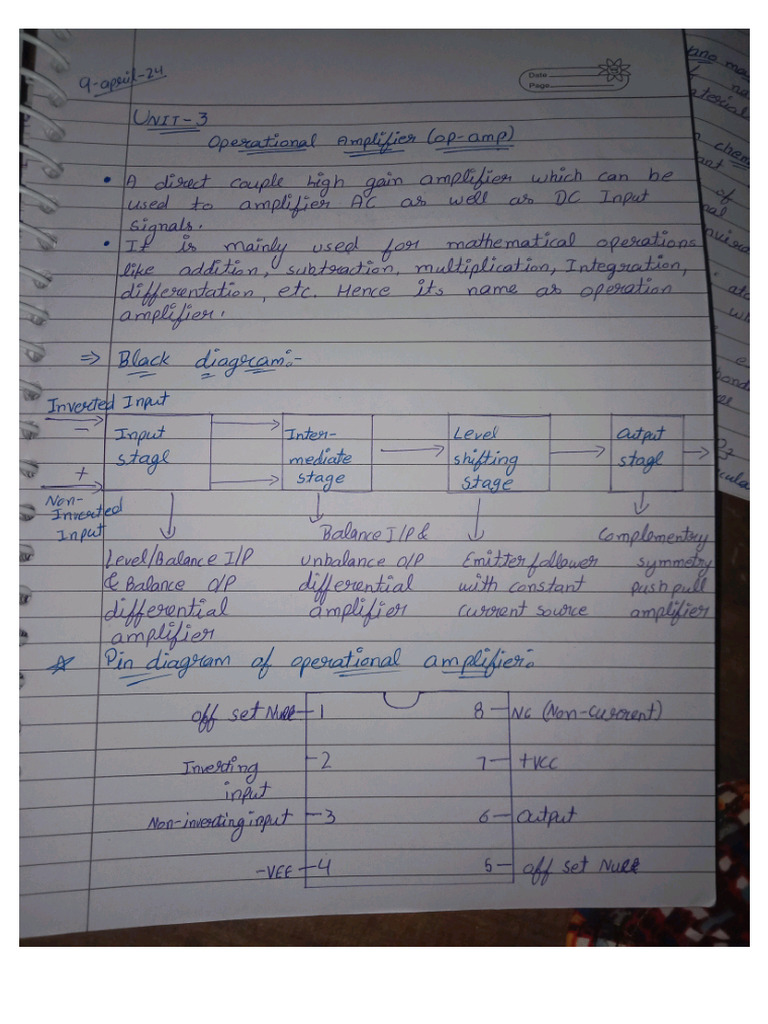 9-april-24
Date
Page
UNIT-3
Operational Amplifier (op-amp)
• A direct couple high gain amplifier which can be
used to amplifier AC as well as DC Input
signals.
• It is mainly used for mathematical operations
like addition, subtraction, multiplication, Integration,
differentation, etc. Hence its name as operation
amplifier.
⇒ Black diagram:-
Inverted Input
Input
stage
Inter-
mediate
stage
Level
shifting
stage
Output
stage
−
+
Non-
Inverted
Input
Level/Balance I/P
& Balance O/P
differential
amplifier
Balance I/P &
unbalance O/P
differential
amplifier
Emitter follower
with constant
current source
Complementry
symmetry
push pull
amplifier
Pin diagram of operational amplifier:
off set Null 1
8 NC (Non-current)
Inverting
input
2
7 +VCC
Non-inverting input 3
6 Output
-VEE 4
5 off set Null